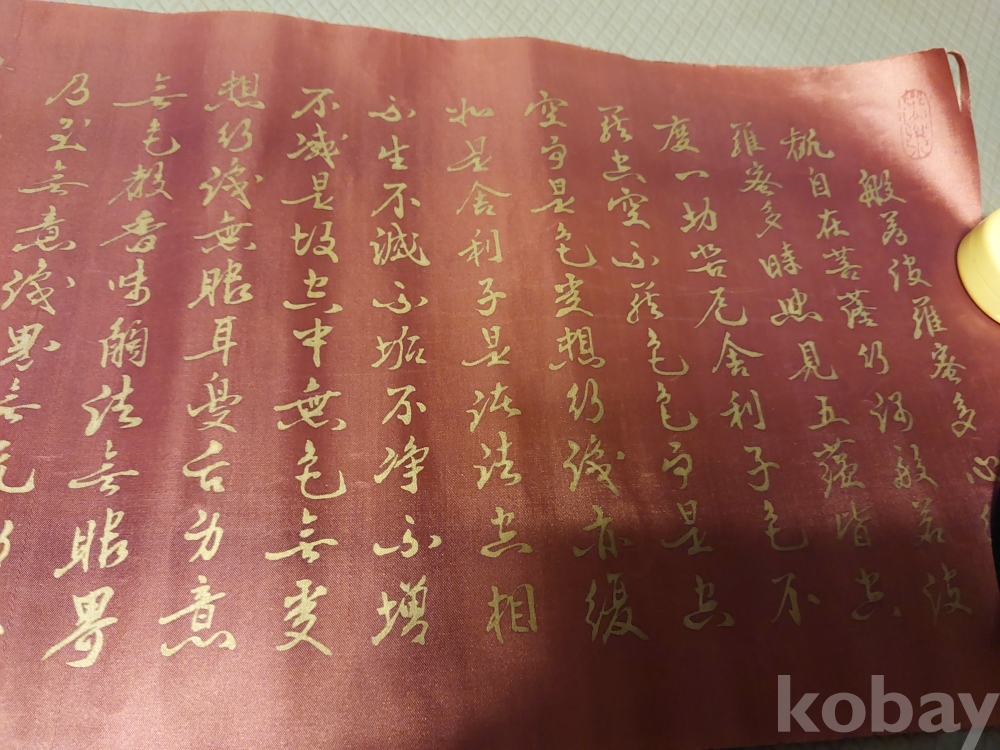 般若波羅蜜多心
觀自在菩薩行深般若波
羅蜜多時照見五蘊皆空
度一切苦厄舍利子色不
異空空不異色色即是空
空即是色受想行識亦復
如是舍利子是諸法空相
不生不滅不垢不淨不增
不減是故空中無色無受
想行識無眼耳鼻舌身意
無色聲香味觸法無眼界
乃至無意識界無无
kobay